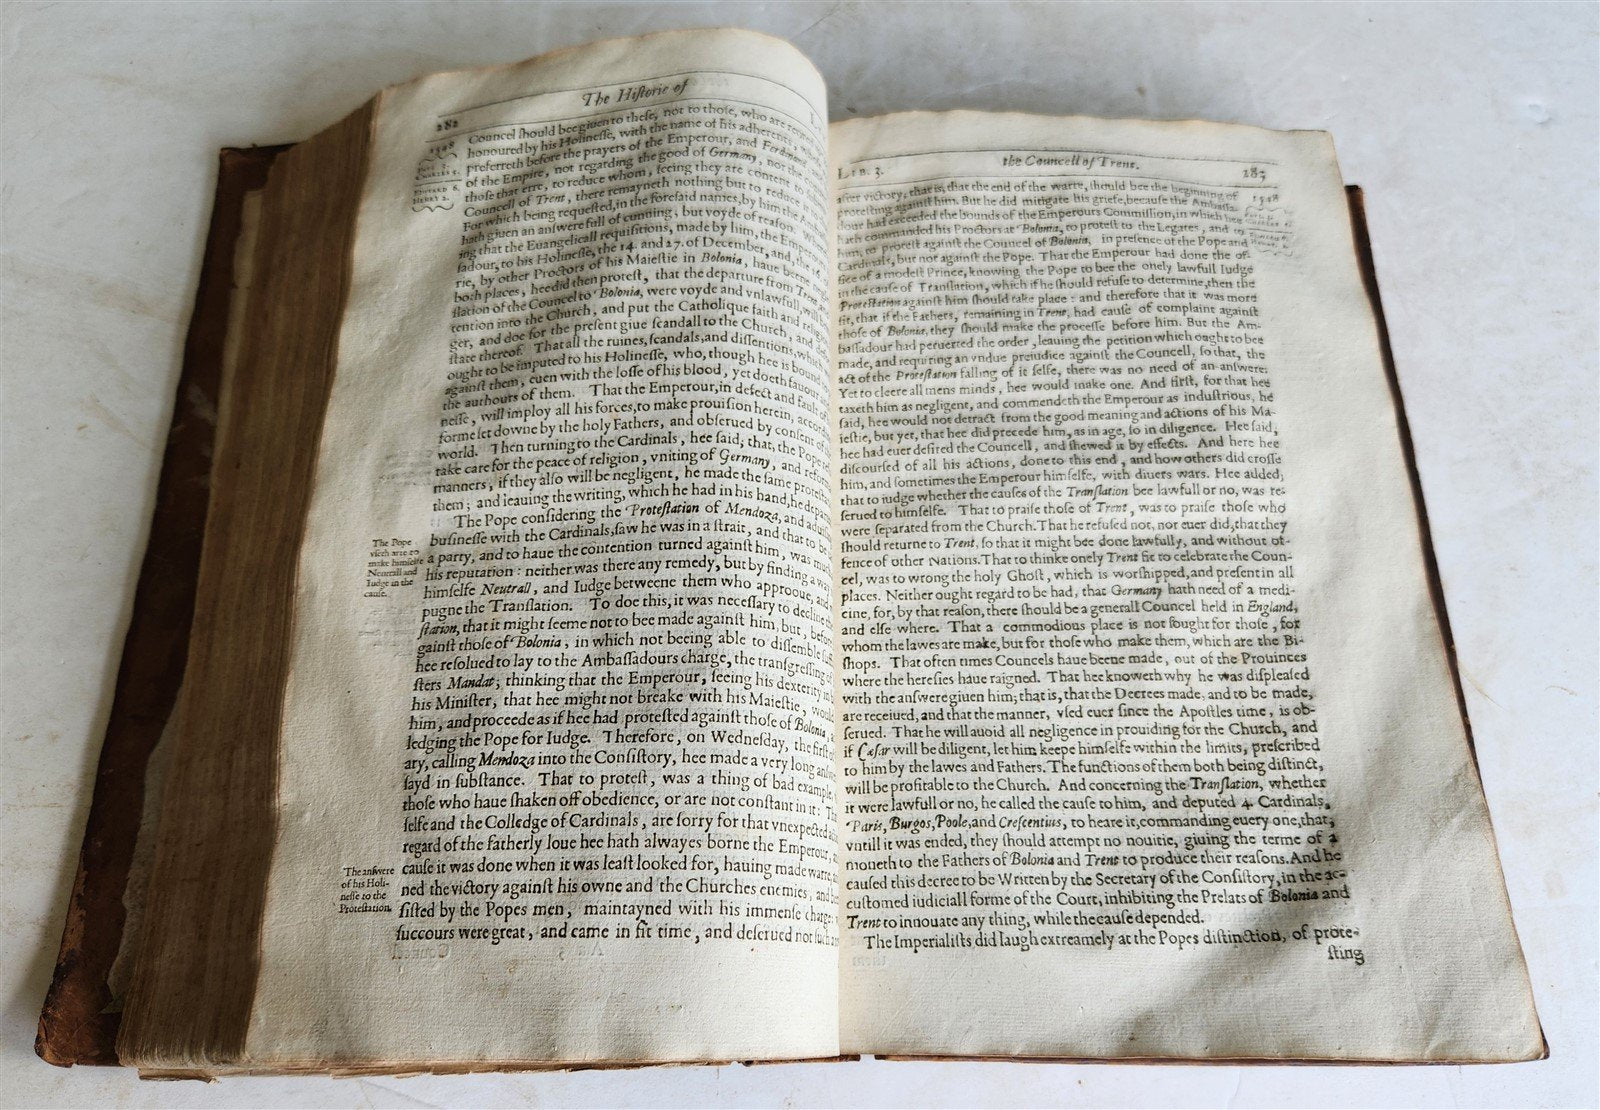 The Historie of
282
1548
PAVL 3.
CHARLES 5.
EDVVARD 6.
HENRY 2.
Councel should bee giuen to these, not to those, who are
honoured by his Holinesse, with the name of his adherents,
preferreth before the prayers of the Emperour, and Ferdinand
of the Empire, not regarding the good of Germany, nor the
those that erre, to reduce whom, seeing they are content to
Councell of Trent, there remayneth nothing but to reduce
For which being requested, in the foresaid names, by him the
hath giuen an answere full of cunning, but voyde of reason.
ing that the Euangelicall requisitions, made by him, the
sadour, to his Holinesse, the 14. and 27. of December, and, the 16.
rie, by other Proctors of his Maiestie in Bolonia, haue beene
both places, hee did then protest, that the departure from Trent
slation of the Councel to Bolonia, were voyde and vnlawfull, will
tention into the Church, and put the Catholique faith and
ger, and doe for the present giue scandall to the Church, and
state thereof. That all the ruines, scandals, and dissentions, which
ought to be imputed to his Holinesse, who, though hee is bound
against them, euen with the losse of his blood, yet doeth fauour
the authours of them. That the Emperour, in defect and fault of
nesse, will imploy all his forces, to make prouision herein,
forme set downe by the holy Fathers, and obserued by consent of
world. Then turning to the Cardinals, hee said, that, the Pope
take care for the peace of religion, vniting of Germany, and
manners, if they also will be negligent, he made the same
them; and leauing the writing, which he had in his hand, he
The Pope considering the Protestation of Mendoza, and
businesse with the Cardinals, saw he was in a strait, and that to be
a party, and to haue the contention turned against him, was much
his reputation: neither was there any remedy, but by finding a way
himselfe Neutrall, and Iudge betweene them who approoue, and
pugne the Translation. To doe this, it was necessary to decline the
station, that it might seeme not to bee made against him, but, before
gainst those of Bolonia, in which not beeing able to dissemble
hee resolued to lay to the Ambassadours charge, the transgressing of
sters Mandat; thinking that the Emperour, seeing his dexterity in
his Minister, that hee might not breake with his Maiestie, would
him, and proceede as if hee had protested against those of Bolonia,
ledging the Pope for Iudge. Therefore, on Wednesday, the first of
ary, calling Mendoza into the Consistory, hee made a very long
sayd in substance. That to protest, was a thing of bad example,
those who haue shaken off obedience, or are not constant in it:
selfe and the Colledge of Cardinals, are sorry for that vnexpected
regard of the fatherly loue hee hath alwayes borne the Emperour,
cause it was done when it was least looked for, hauing made warre,
ned the victory against his owne and the Churches enemies, and
sisted by the Popes men, maintayned with his immense charge:
succours were great, and came in fit time, and deserued not such
The Pope
vseth arte to
make himselfe
Neutrall and
Iudge in the
cause.
The answere
of his Holi-
nesse to the
Protestation.
LIB. 3.
the Councell of Trent.
283
1548
after victory, that is, that the end of the warre, should bee the beginning of
protesting against him. But he did mitigate his griefe, because the Ambassa-
dour had exceeded the bounds of the Emperours Commission, in which hee
hath commanded his Proctors at Bolonia, to protest to the Legates, and to
him, to protest against the Councel of Bolonia, in presence of the Pope and
Cardinals, but not against the Pope. That the Emperour had done the of-
fice of a modest Prince, knowing the Pope to bee the onely lawfull Iudge
in the cause of Translation, which if he should refuse to determine, then the
Protestation against him should take place: and therefore that it was more
fit, that if the Fathers, remaining in Trent, had cause of complaint against
those of Bolonia, they should make the processe before him. But the Am-
bassadour had peruerted the order, leauing the petition which ought to bee
made, and requiring an vndue preiudice against the Councell, so that, the
act of the Protestation falling of it selfe, there was no need of an answere:
Yet to cleere all mens minds, hee would make one. And first, for that hee
taxeth him as negligent, and commendeth the Emperour as industrious, he
said, hee would not detract from the good meaning and actions of his Ma-
iestie, but yet, that hee did precede him, as in age, so in diligence. Hee said,
hee had euer desired the Councell, and shewed it by effects. And here hee
discoursed of all his actions, done to this end, and how others did crosse
him, and sometimes the Emperour himselfe, with diuers wars. Hee added,
that to iudge whether the causes of the Translation bee lawfull or no, was re-
serued to himselfe. That to praise those of Trent, was to praise those who
were separated from the Church. That he refused not, nor euer did, that they
should returne to Trent, so that it might bee done lawfully, and without of-
fence of other Nations. That to thinke onely Trent fit to celebrate the Coun-
cel, was to wrong the holy Ghost, which is worshipped, and present in all
places. Neither ought regard to be had, that Germany hath need of a medi-
cine, for, by that reason, there should be a generall Councel held in England,
and else where. That a commodious place is not sought for those, for
whom the lawes are make, but for those who make them, which are the Bi-
shops. That often times Councels haue beene made, out of the Prouinces
where the heresies haue raigned. That hee knoweth why he was displeased
with the answere giuen him; that is, that the Decrees made, and to be made,
are receiued, and that the manner, vsed euer since the Apostles time, is ob-
serued. That he will auoid all negligence in prouiding for the Church, and
if Cæsar will be diligent, let him keepe himselfe within the limits, prescribed
to him by the lawes and Fathers. The functions of them both being distinct,
will be profitable to the Church. And concerning the Translation, whether
it were lawfull or no, he called the cause to him, and deputed 4. Cardinals,
Paris, Burgos, Poole, and Crescentius, to heare it, commanding euery one, that,
vntill it was ended, they should attempt no nouitie, giuing the terme of a
moneth to the Fathers of Bolonia and Trent to produce their reasons. And he
caused this decree to be Written by the Secretary of the Consistory, in the ac-
customed iudiciall forme of the Court, inhibiting the Prelats of Bolonia and
Trent to innouate any thing, while the cause depended.
The Imperialists did laugh extreamely at the Popes distinction, of prote-
sting